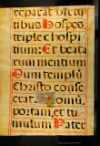 reparat vic
tibus Hospes
triplex hospi
tium: Et beata
rum mentium
Dum templū
Christo conse
crat: Domū,
portam, et tu
mulum Pater